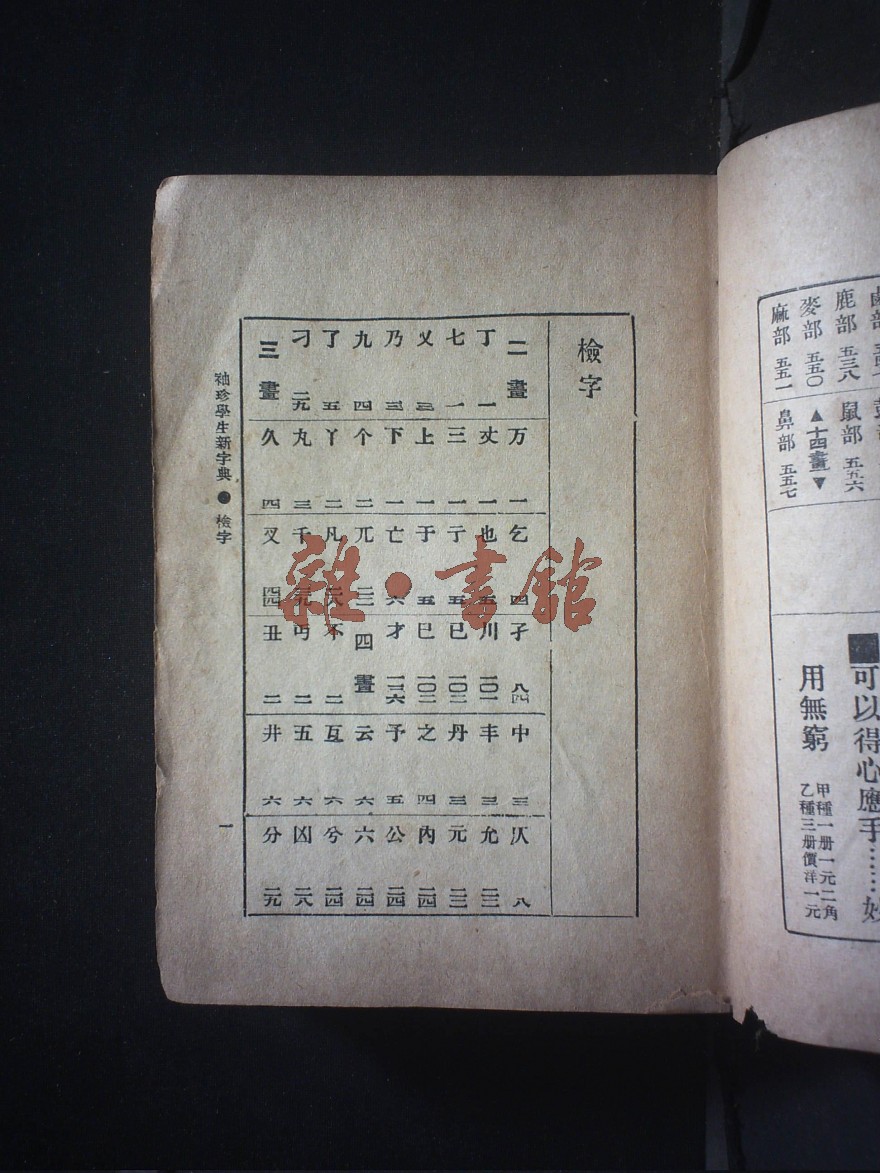 鹿部 五三八
麥部 五五〇
麻部 五五一
鼠部 五五六
▲十四畫▼
鼻部 五五七
可以得心應手……妙
用無窮
甲種一册一元二角
乙種三册價洋一元
檢字
二畫
丁 一
七 一
乂 三
乃 三
九 四
了 五
刁 二九
三畫
万 一
丈 一
三 一
上 一
下 一
个 二
丫 二
丸 三
久 四
乞 四
也 五
亍 五
于 五
亡 六
兀 二二
凡
千
叉 四四
孑 八四
川 一〇一
已 一〇二
巳 一〇二
才 一三六
四畫
不 二
丏 二
丑 二
中 三
丰 三
丹 三
之 四
予 五
云 六
互 六
五 六
井 六
仄 八
允 二二
元 二二
內 二四
公 二四
六 二四
兮 二四
凶 二八
分 二九
袖珍學生新字典●檢字
一
雜·書館